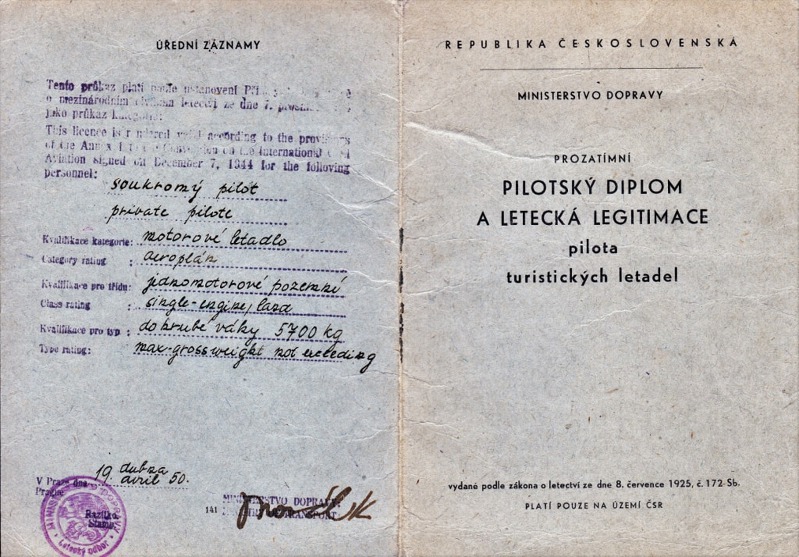 ÚŘEDNÍ ZÁZNAMY
Tento průkaz platí podle ustanovení
o mezinárodním civilním letectví ze dne 7.
jako průkaz kategorie:
This licence is rendered valid according to the provisions
of the Annex Convention on the International Civil
Aviation signed on December 7, 1944 for the following
personnel:
soukromý pilót
private pilote
Kvalifikace kategorie: motorové letadlo
Category rating aeroplán
Kvalifikace pro třídu: jednomotorové pozemní
Class rating single-engine, land
Kvalifikace pro typ : do hrubé váhy 5700 kg
Type rating: max-grossweight not exceeding
V Praze dne 19. dubna
Prague avril 50.
Razítko
Stamp
Letecký odbor
141 MINISTERSTVO DOPRAVY
TRANSPORT
REPUBLIKA ČESKOSLOVENSKÁ
MINISTERSTVO DOPRAVY
PROZATÍMNÍ
PILOTSKÝ DIPLOM
A LETECKÁ LEGITIMACE
pilota
turistických letadel
vydané podle zákona o letectví ze dne 8. července 1925, č. 172-Sb.
PLATÍ POUZE NA ÚZEMÍ ČSR